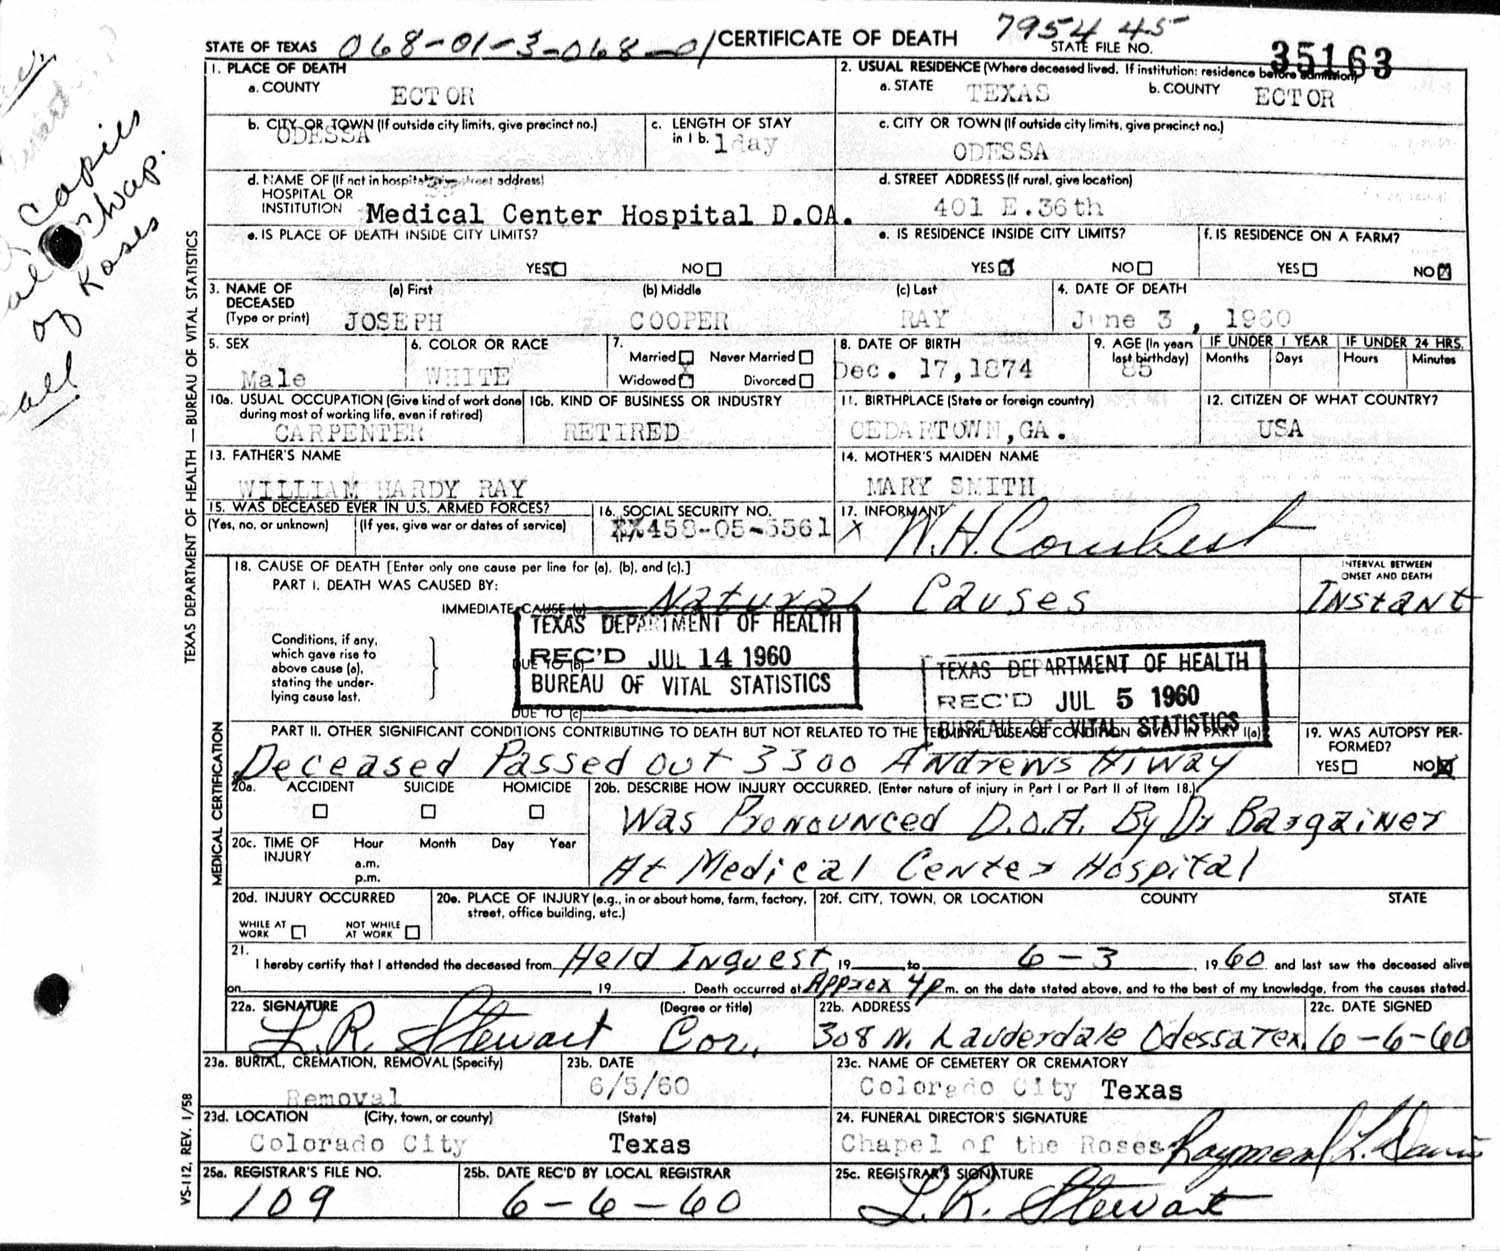 7954 45
STATE OF TEXAS 068-01-3-068-01 CERTIFICATE OF DEATH STATE FILE NO. 35163
1. PLACE OF DEATH
a. COUNTY ECTOR
2. USUAL RESIDENCE (Where deceased lived. If institution: residence before admission)
a. STATE TEXAS b. COUNTY ECTOR
b. CITY OR TOWN (If outside city limits, give precinct no.)
ODESSA
c. LENGTH OF STAY
in 1 b. 1day
c. CITY OR TOWN (If outside city limits, give precinct no.)
ODESSA
d. NAME OF (If not in hospital, give street address)
HOSPITAL OR
INSTITUTION Medical Center Hospital D.OA.
d. STREET ADDRESS (If rural, give location)
401 E.36th
e. IS PLACE OF DEATH INSIDE CITY LIMITS?
YES NO
e. IS RESIDENCE INSIDE CITY LIMITS?
YES NO
f. IS RESIDENCE ON A FARM?
YES NO
3. NAME OF
DECEASED
(Type or print)
(a) First (b) Middle (c) Last
JOSEPH COOPER RAY
4. DATE OF DEATH
June 3, 1960
5. SEX
Male
6. COLOR OR RACE
WHITE
7.
Married Never Married
Widowed Divorced
8. DATE OF BIRTH
Dec. 17,1874
9. AGE (In years
last birthday)
85
IF UNDER 1 YEAR IF UNDER 24 HRS.
Months Days Hours Minutes
10a. USUAL OCCUPATION (Give kind of work done
during most of working life, even if retired)
CARPENTER
10b. KIND OF BUSINESS OR INDUSTRY
RETIRED
11. BIRTHPLACE (State or foreign country)
CEDARTOWN,GA.
12. CITIZEN OF WHAT COUNTRY?
USA
13. FATHER'S NAME
WILLIAM HARDY RAY
14. MOTHER'S MAIDEN NAME
MARY SMITH
15. WAS DECEASED EVER IN U.S. ARMED FORCES?
(Yes, no, or unknown) (If yes, give war or dates of service)
16. SOCIAL SECURITY NO.
458-05-5561
17. INFORMANT
X W.H. Combest
18. CAUSE OF DEATH [Enter only one cause per line for (a), (b), and (c).]
PART I. DEATH WAS CAUSED BY:
IMMEDIATE CAUSE (a) Natural Causes
INTERVAL BETWEEN
ONSET AND DEATH
Instant
Conditions, if any,
which gave rise to
above cause (a),
stating the under-
lying cause last.
DUE TO (b)
DUE TO (c)
TEXAS DEPARTMENT OF HEALTH
REC'D JUL 14 1960
BUREAU OF VITAL STATISTICS
TEXAS DEPARTMENT OF HEALTH
REC'D JUL 5 1960
BUREAU OF VITAL STATISTICS
PART II. OTHER SIGNIFICANT CONDITIONS CONTRIBUTING TO DEATH BUT NOT RELATED TO THE TERMINAL DISEASE CONDITION GIVEN IN PART I(a)
Deceased Passed out 3300 Andrews Hiway
19. WAS AUTOPSY PER-
FORMED?
YES NO
20a. ACCIDENT SUICIDE HOMICIDE
20b. DESCRIBE HOW INJURY OCCURRED. (Enter nature of injury in Part I or Part II of Item 18.)
Was Pronounced D.O.A. By Dr Bargainer
At Medical Center Hospital
20c. TIME OF
INJURY
Hour Month Day Year
a.m.
p.m.
20d. INJURY OCCURRED
WHILE AT
WORK
NOT WHILE
AT WORK
20e. PLACE OF INJURY (e.g., in or about home, farm, factory,
street, office building, etc.)
20f. CITY, TOWN, OR LOCATION COUNTY STATE
21.
I hereby certify that I attended the deceased from Held Inquest 19 to 6-3, 1960 and last saw the deceased alive
on 19 Death occurred at Approx 4 p m. on the date stated above, and to the best of my knowledge, from the causes stated.
22a. SIGNATURE (Degree or title)
L.R. Stewart Cor.
22b. ADDRESS
308 N. Lauderdale Odessa Tex.
22c. DATE SIGNED
6-6-60
23a. BURIAL, CREMATION, REMOVAL (Specify)
Removal
23b. DATE
6/5/60
23c. NAME OF CEMETERY OR CREMATORY
Colorado City Texas
23d. LOCATION (City, town, or county) (State)
Colorado City Texas
24. FUNERAL DIRECTOR'S SIGNATURE
Chapel of the Roses Raymond L. Davis
25a. REGISTRAR'S FILE NO.
109
25b. DATE REC'D BY LOCAL REGISTRAR
6-6-60
25c. REGISTRAR'S SIGNATURE
L.R. Stewart
TEXAS DEPARTMENT OF HEALTH — BUREAU OF VITAL STATISTICS
MEDICAL CERTIFICATION
VS-112, REV. 1/58
copies
chap.
of Roses
all